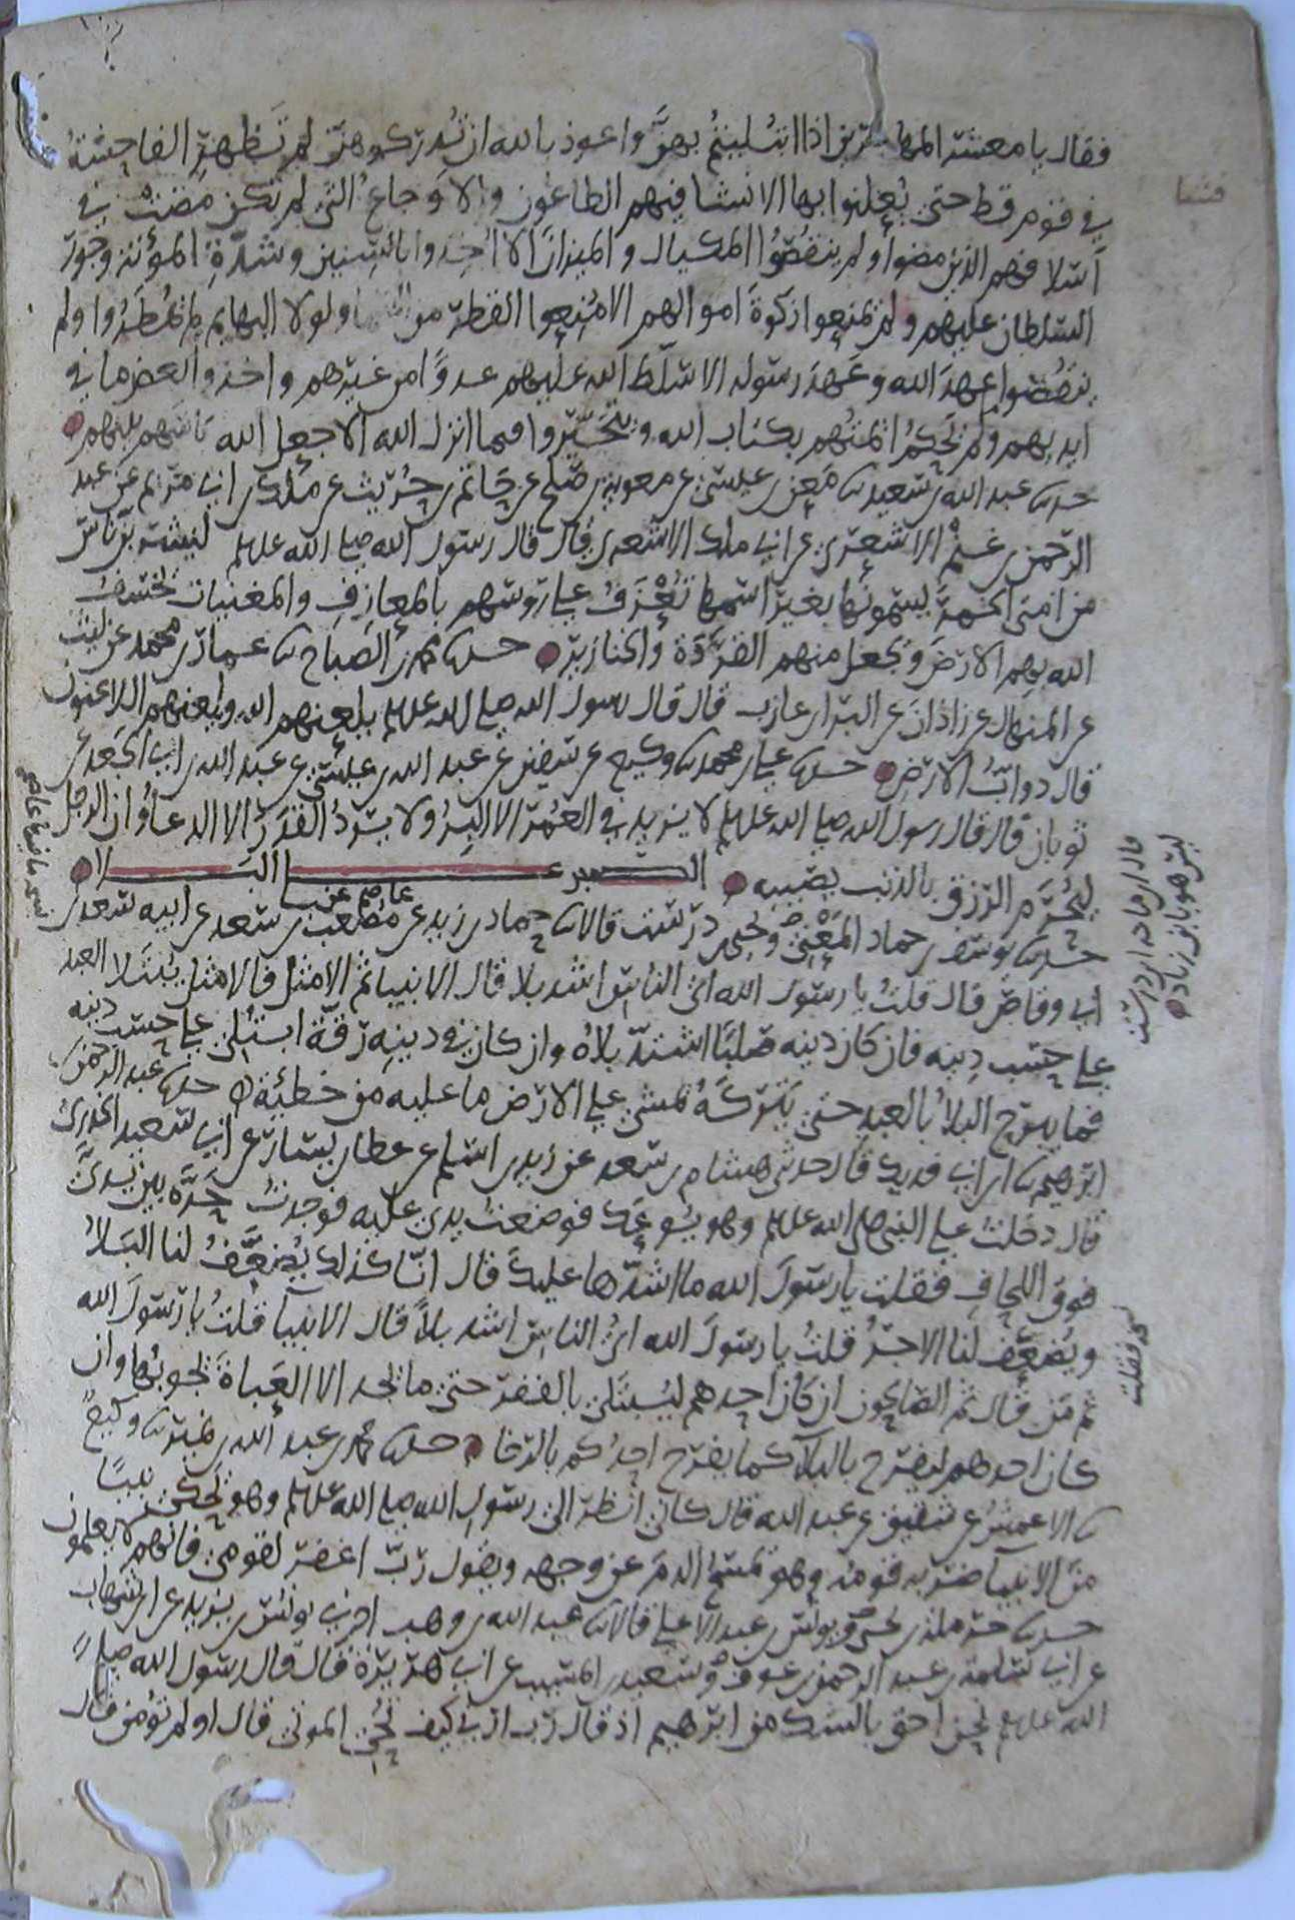 فقال يا معشر المهاجرين اذا ابتُليتُم بهنَّ واعوذ بالله ان تُدركوهنّ لم تَظهرِ الفاحِشةُ
في قوم قط حتى يُعلنوا بها الا فشا فيهم الطاعُون والاوجاعُ التي لم تكن مضتْ في
أسلافهم الذين مضوا ولم ينقصُوا المكيال والميزان الا اُخِذوا بالسِنين وشدّةِ المؤنة وجور
السلطان عليهم ولم يمنعوا زكوةَ اموالهم الا مُنِعوا القطر من السما ولولا البهايم لم يُمطَرُوا ولم
ينقضوا عهدَ الله وعَهدَ رسوله الا سلّط الله عليهم عدوًّا من غيرهم واخذوا بعض ما في
ايديهم ولم تحكمُ ائمتُهم بكتاب الله ويتخيّروا مما انزل الله الا جعل الله باسَهم بينهم
حدثنا عبد الله بن سعيد ثنا معن بن عيسى عن معوية بن صلح عن حاتم بن حُريث عن ملك بن ابي مريم عن عبد
الرحمن بن غنمْ الاشعري عن ابي ملك الاشعري قال قال رسول الله صلى الله عليه وسلم ليشربن ناس
من امتي الخمرَ يسمونُها بغير اسمها تُعْزَفُ على روسهم بالمعازِفِ والمغنيات يخسفُ
الله بهم الارضَ ويجعل منهم القرَدَة والخنازير حدثنا محمد بن الصباح ثنا عمار بن محمد عن ليث
عن المنهال عن زاذان عن البرا بن عازب قال قال رسول الله صلى الله عليه وسلم يلعنهم الله ويلعنهم اللاعنون
قال دوابّ الارض حدثنا علي بن محمد ثنا وكيع عن سفين عن عبد الله بن عيسى عن عبد الله بن ابي الجعد عن
ثوبان قال قال رسول الله صلى الله عليه وسلم لا يزيد في العُمْر الا البِرُّ ولا يردُ القدرَ الا الدعأُ وان الرجل
ليُحْرَم الرزق بالذنب يصيبه الصبر على البلا
حدثنا يوسف بن حماد المَعْنِيّ ويحيى بن درست قالا ثنا حماد بن زيد عن عاصم عن مصعب بن سعد عن ابيه سعد بن
ابي وقاص قال قلتُ يا رسول الله ايّ الناسِ اشد بلا قال الانبيا ثم الامثل فالامثل يُبتلا العبد
على حسب دِينِه فان كان دينه صُلبًا اشتدّ بلاؤه وان كان في دينِه رقّة ابتُلي على حسب دينه
فما يبرح البلاُ بالعبد حتى يَتركَهُ يمشي على الارض ما عليه من خطئية حدثنا عبد الرحمن بن
ابرهيم ثنا ابن ابي فديك قال حدثني هشام بن سعد عن زيد بن اسلم عن عطا بن يسار عن ابي سعيد الخدريّ
قال دخلتُ على النبي صلى الله عليه وسلم وهو يُوعَك فوضعتُ يدي عليه فوجدتُ حَرَّه بين يديّ
فوق اللحاف فقلت يا رسولَ الله ما اشدّها عليكَ قال انّا كذلك يُضعَّفُ لنا البَلاُ
ويُضعَّف لنا الاجرُ قلتُ يا رسولَ الله ايُّ الناسِ اشد بلاً قال الانبيآ قلتُ يا رسولَ الله
ثم مَن قال ثم الصالحون ان كان احدهم ليُبتَلى بالفقر حتى ما يجد الا العَباةَ يحوبُها وان
كان احدهم ليفرح بالبلآ كما يفرح احدُكم بالرخا حدثنا محمد بن عبد الله بن نمير ثنا وكيعُ
ثنا الاعمش عن شقيق عن عبد الله قال كاني انظر الى رسول الله صلى الله عليه وسلم وهو يحكي نبيًا
من الانبيا ضربه قومُه وهو يمسحُ الدمَ عن وجهه ويقول ربّ اغفر لقومي فانهم لا يعلمون
حدثنا حرملة بن يحيى ويونس بن عبد الاعلى قالا ثنا عبد الله بن وهب اخبرني يونس بن يزيد عن ابن شهاب
عن ابي سلمة بن عبد الرحمن بن عوف وسعيد بن المسيب عن ابي هريرة قال قال رسول الله صلى
الله عليه وسلم نحن احق بالشك من ابرهيم اذ قال رب ارني كيف تُحْيِ الموتى قال اولم تؤمن قال
فشا
قال ابن ماجه ابن درست
ليس هو بابن زياد
فقلت